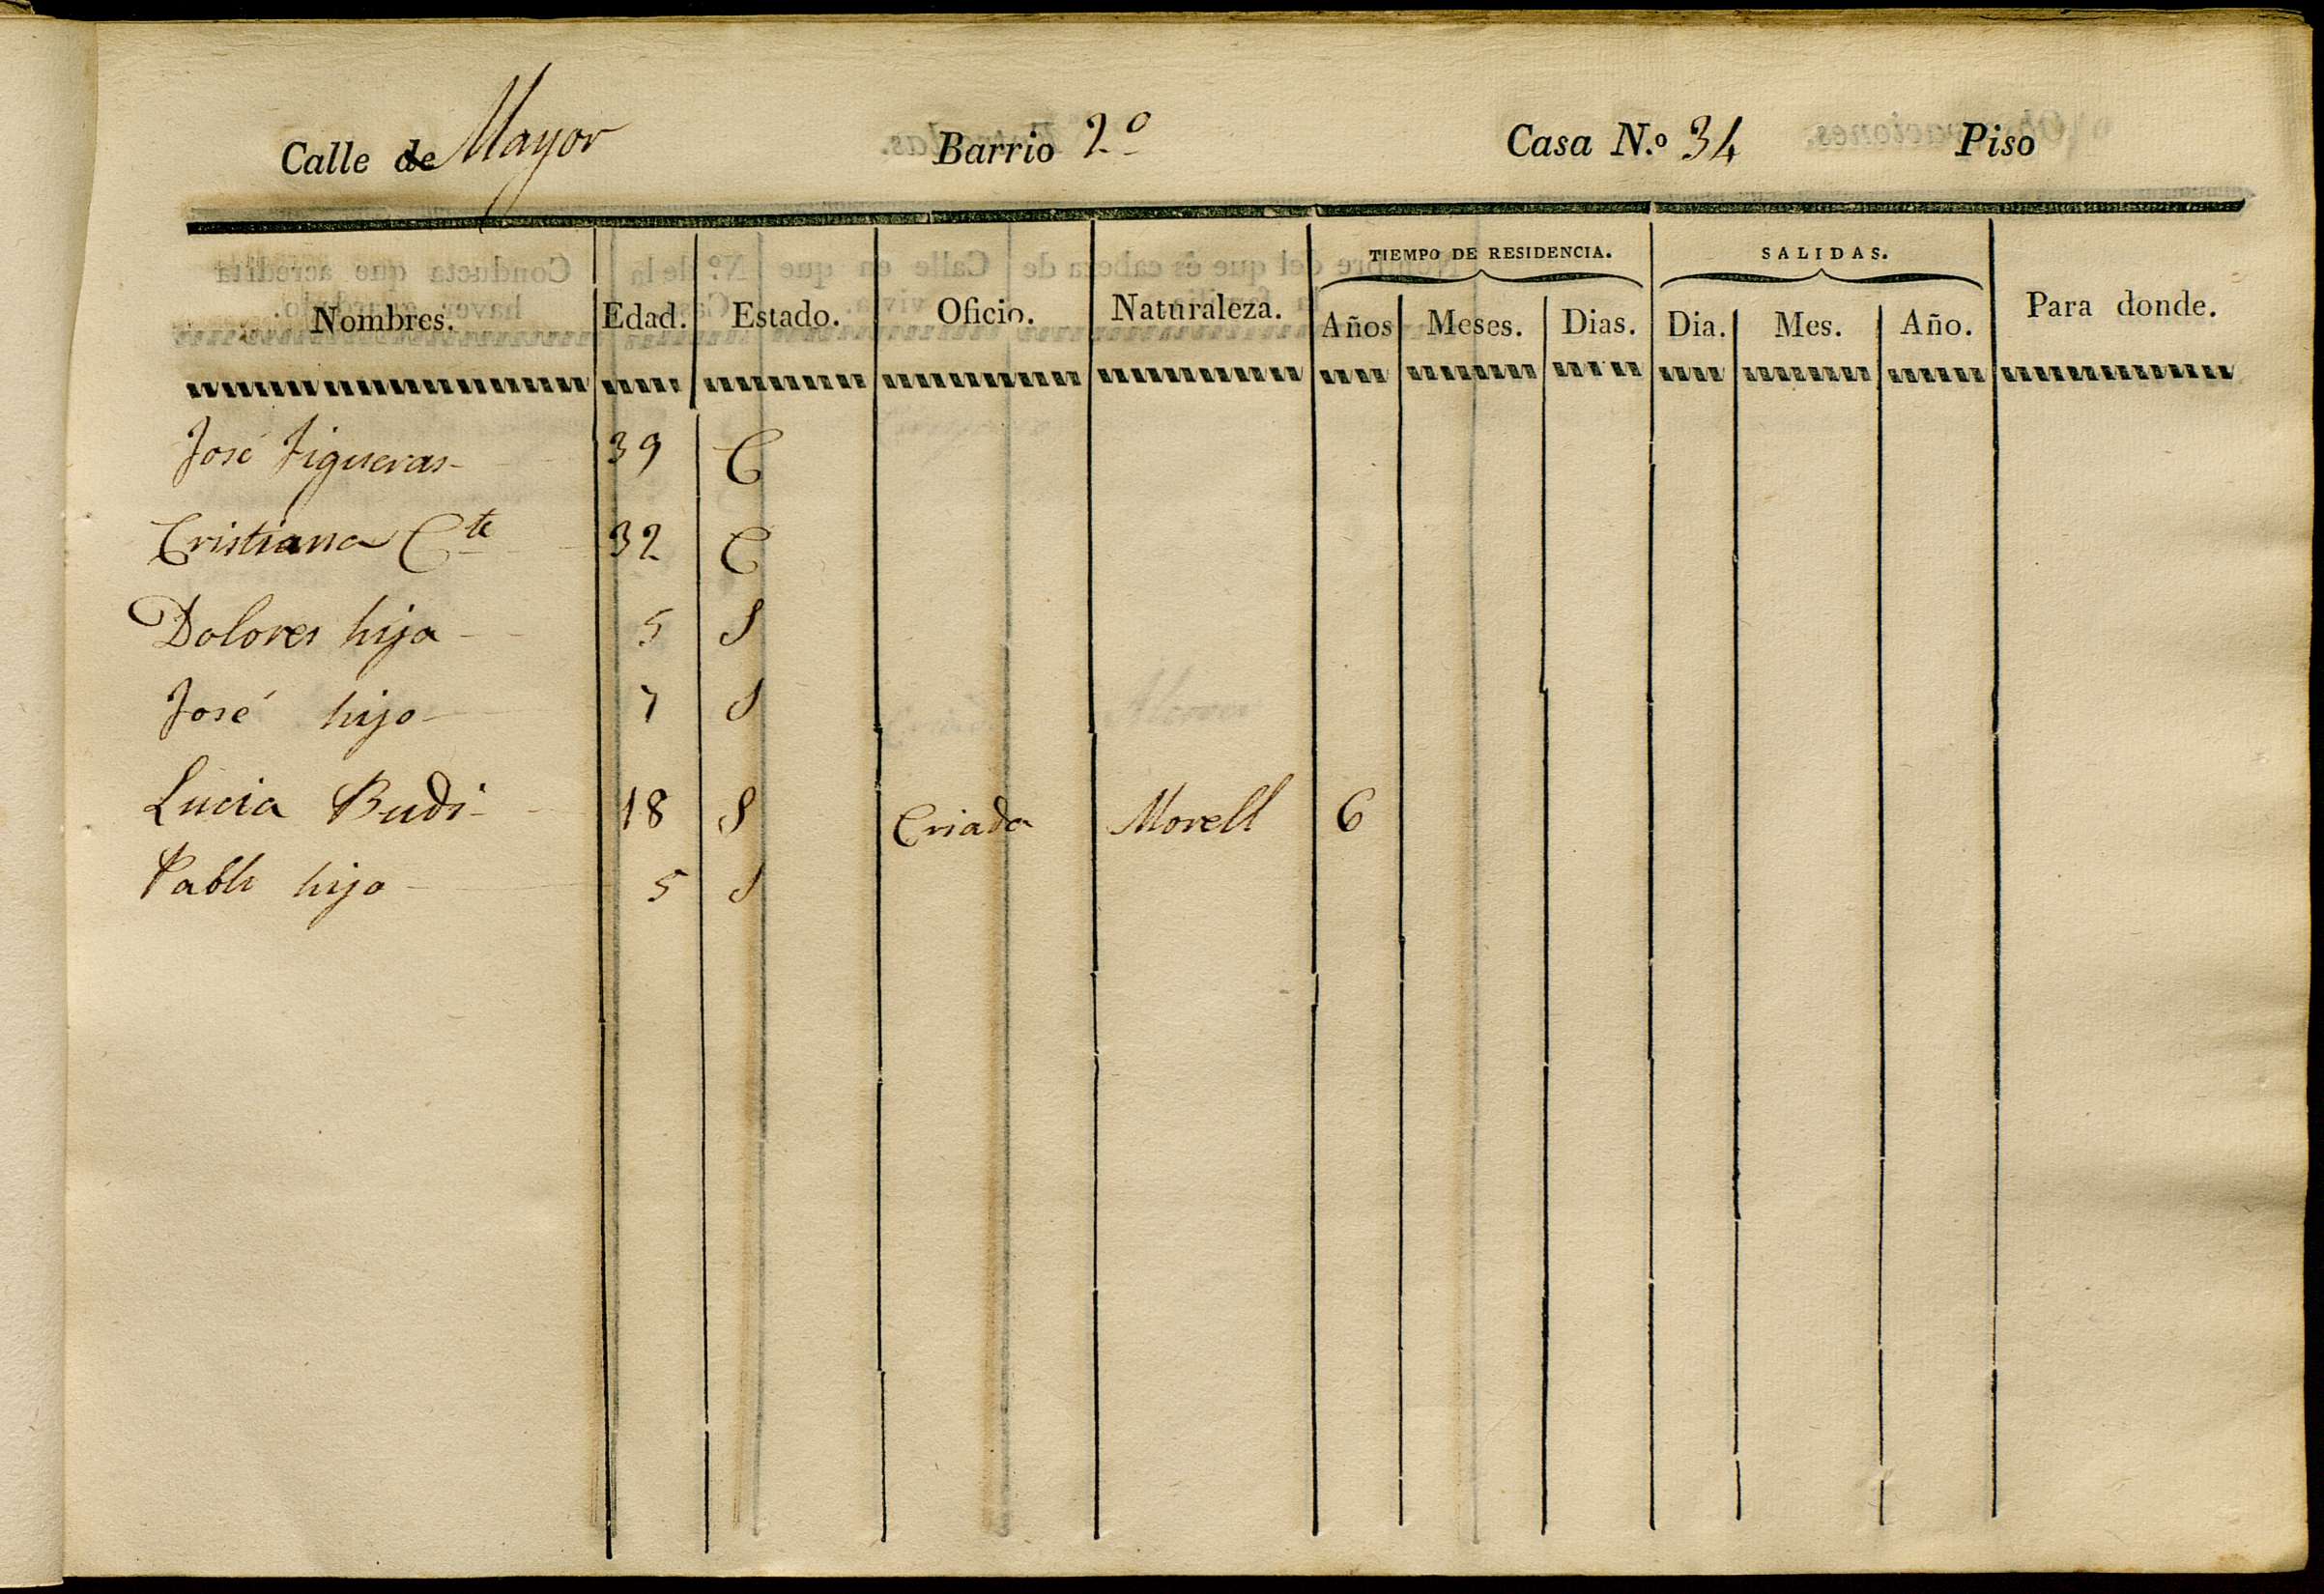 Calle de Mayor Barrio 2.º Casa N.º 34 Piso
TIEMPO DE RESIDENCIA. SALIDAS.
Nombres. Edad. Estado. Oficio. Naturaleza. Años Meses. Dias. Dia. Mes. Año. Para donde.
José Figueras 39 C
Cristiana Cte 32 C
Dolores hija 5 S
José hijo 7 S
Lucia Budi 18 S Criada Morell 6
Pablo hijo 5 S